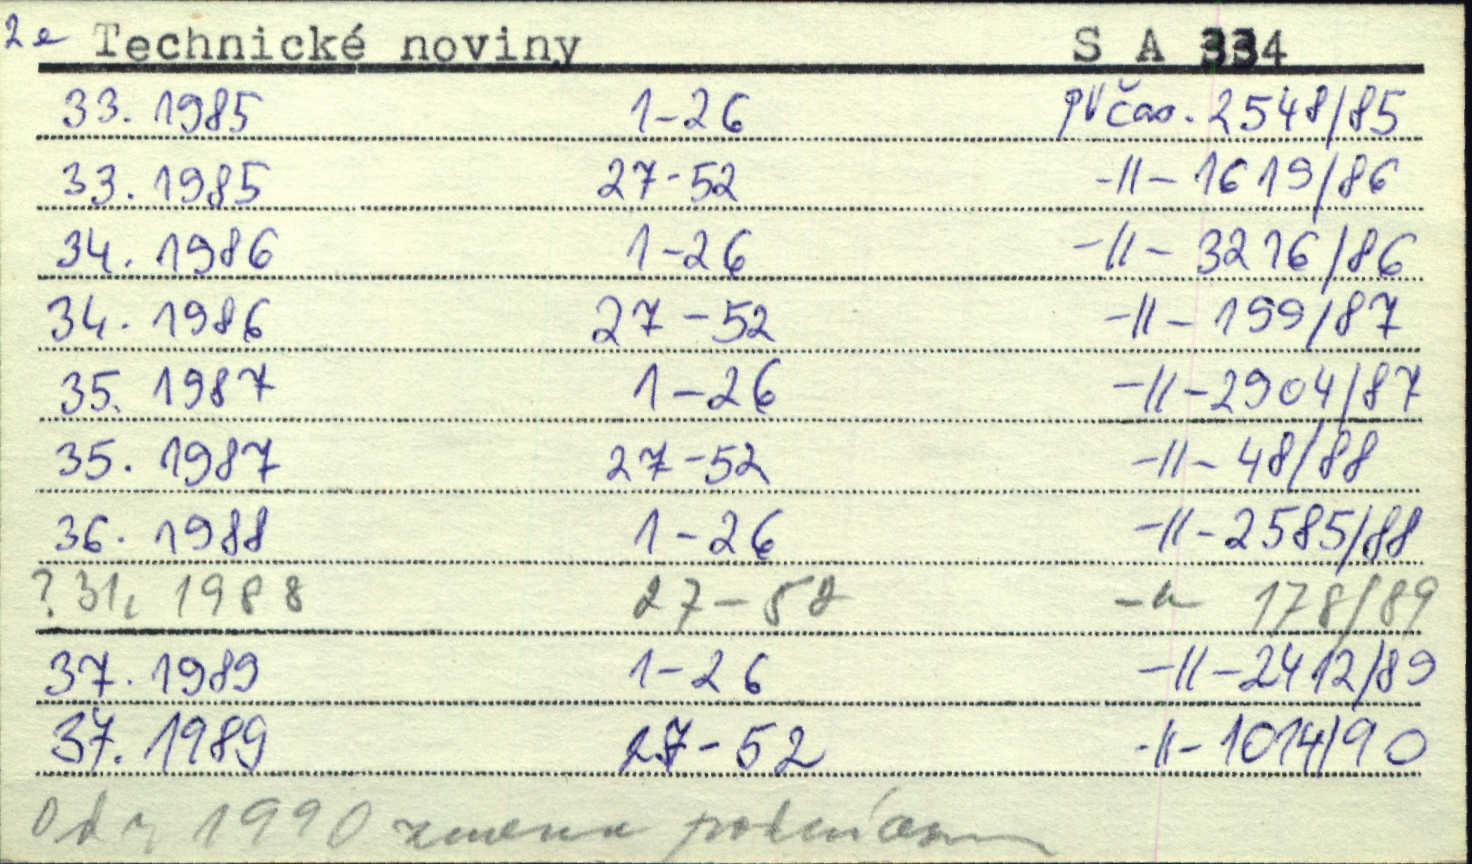 2e Technické noviny S A 334
33. 1985 1-26 PV čas. 2548/85
33. 1985 27-52 -11- 1619/86
34. 1986 1-26 -11- 3216/86
34. 1986 27-52 -11- 199/87
35. 1987 1-26 -11- 2904/87
35. 1987 27-52 -11- 48/88
36. 1988 1-26 -11- 2585/88
? 31. 1988 27-52 178/89
37. 1989 1-26 -11- 2412/89
37. 1989 27-52 -11- 1014/90
Od r. 1990 zmena